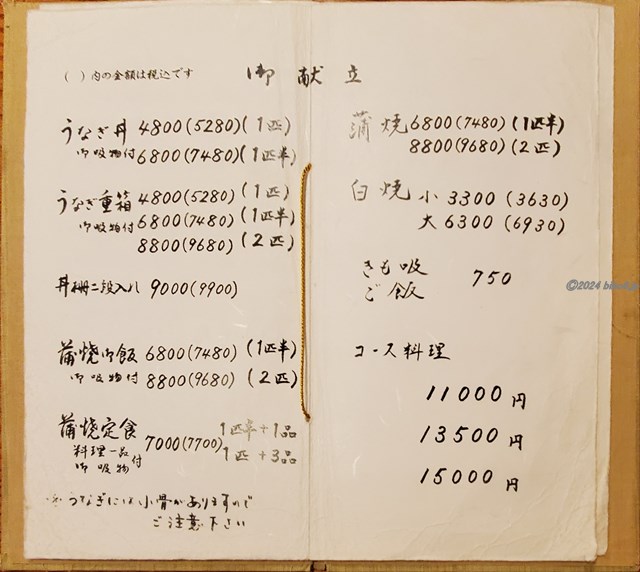 ( )内の金額は税込です
御献立
うなぎ丼 4800(5280)(1匹)
御吸物付 6800(7480)(1匹半)
うなぎ重箱 4800(5280)(1匹)
御吸物付 6800(7480)(1匹半)
8800(9680)(2匹)
丼 二段入れ 9000(9900)
蒲焼御飯 6800(7480)(1匹半)
御吸物付 8800(9680)(2匹)
蒲焼定食 7000(7700) 1匹半+1品
料理一品 御吸物付 1匹+3品
うなぎには小骨がありますので
ご注意下さい
蒲焼 6800(7480)(1匹半)
8800(9680)(2匹)
白焼 小 3300(3630)
大 6300(6930)
きも吸
ご飯 750
コース料理
11000円
13500円
15000円
©2024